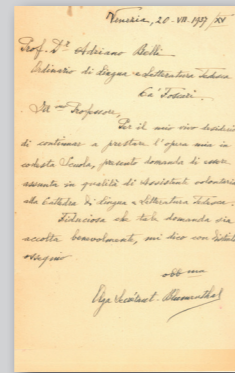 Venezia, 20 - VII - 1937/XV
Prof. Dr Adriano Belli
Ordinario di Lingua e Letteratura Tedesca
Ca' Foscari.
Ill mo Professore,
Per il mio vivo desiderio
di continuare a prestare l'opera mia in
codesta Scuola, presento domanda di essere
assunta in qualità di assistente volontaria
alla Cattedra di Lingua e Letteratura Tedesca.
Fiduciosa che tale domanda sia
accolta benevolmente, mi dico con distinto
ossequio
obb ma
Olga Blumenthal